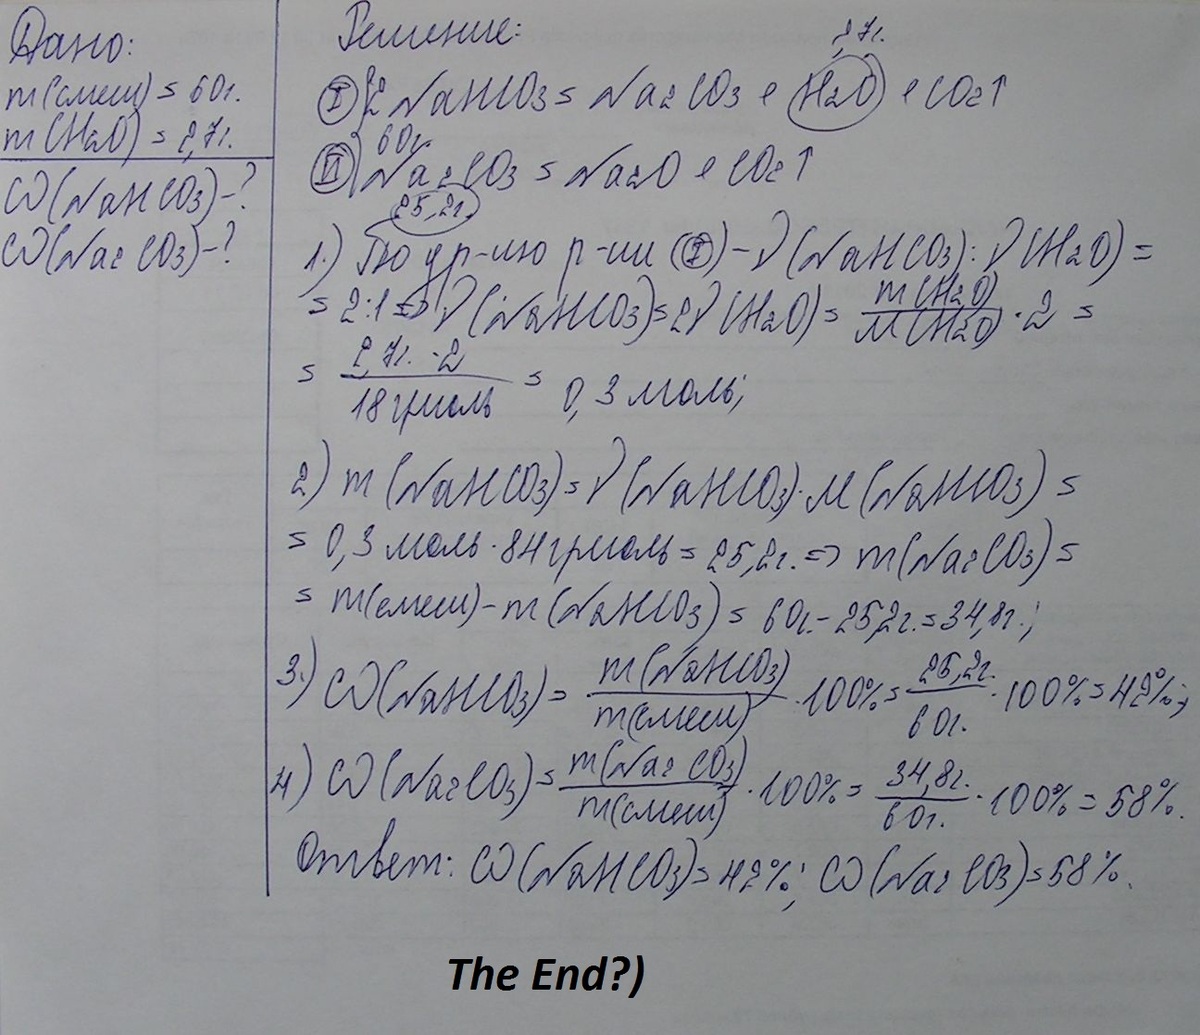 Дано:
m(смеш) = 60г.
m(H2O) = 2,7г.
ω(NaHCO3)-?
ω(Na2CO3)-?
Решение:
2,7г.
I 2NaHCO3 = Na2CO3 + H2O + CO2↑
60г.
II Na2CO3 = Na2O + CO2↑
25,2г.
1.) По ур-ию р-ии (I) - ν(NaHCO3) : ν(H2O) =
= 2:1 => ν(NaHCO3) = 2ν(H2O) = m(H2O)/M(H2O) · 2 =
= 2,7г. · 2 / 18г/моль = 0,3 моль;
2) m(NaHCO3) = ν(NaHCO3) · M(NaHCO3) =
= 0,3 моль · 84г/моль = 25,2г. => m(Na2CO3) =
= m(смеш) - m(NaHCO3) = 60г. - 25,2г. = 34,8г.;
3.) ω(NaHCO3) = m(NaHCO3)/m(смеш) · 100% = 25,2г./60г. · 100% = 42%;
4) ω(Na2CO3) = m(Na2CO3)/m(смеш) · 100% = 34,8г./60г. · 100% = 58%.
Ответ: ω(NaHCO3) = 42%; ω(Na2CO3) = 58%.
The End?)